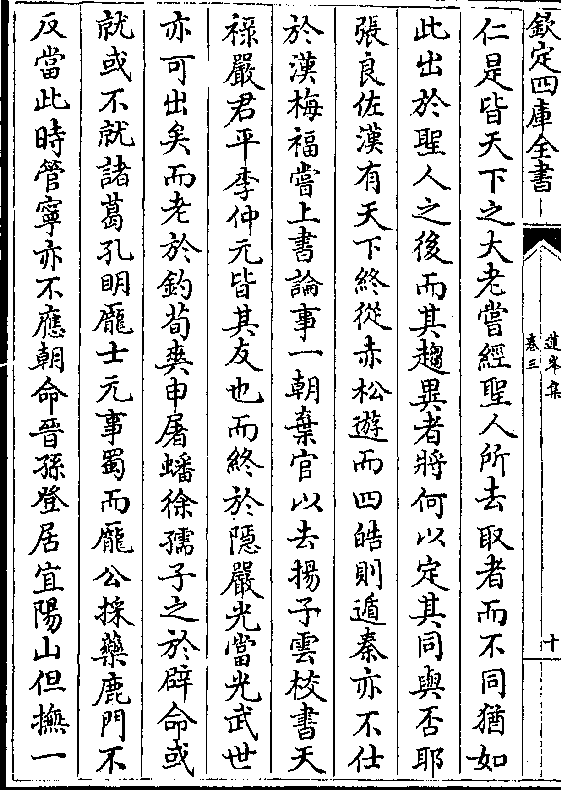 欽定四庫全書
道鄉集
卷三
十
仁是皆天下之大老嘗經聖人所去取者而不同猶如
此出於聖人之後而其趨異者將何以定其同與否耶
張良佐漢有天下終從赤松遊而四皓則遁秦亦不仕
於漢梅福嘗上書論事一朝棄官以去揚子雲校書天
祿嚴君平李仲元皆其友也而終於隱嚴光當光武世
亦可出矣而老於釣荀爽申屠蟠徐孺子之於辟命或
就或不就諸葛孔明龎士元事蜀而龎公採藥鹿門不
反當此時管寧亦不應朝命晉孫登居宜陽山但撫一